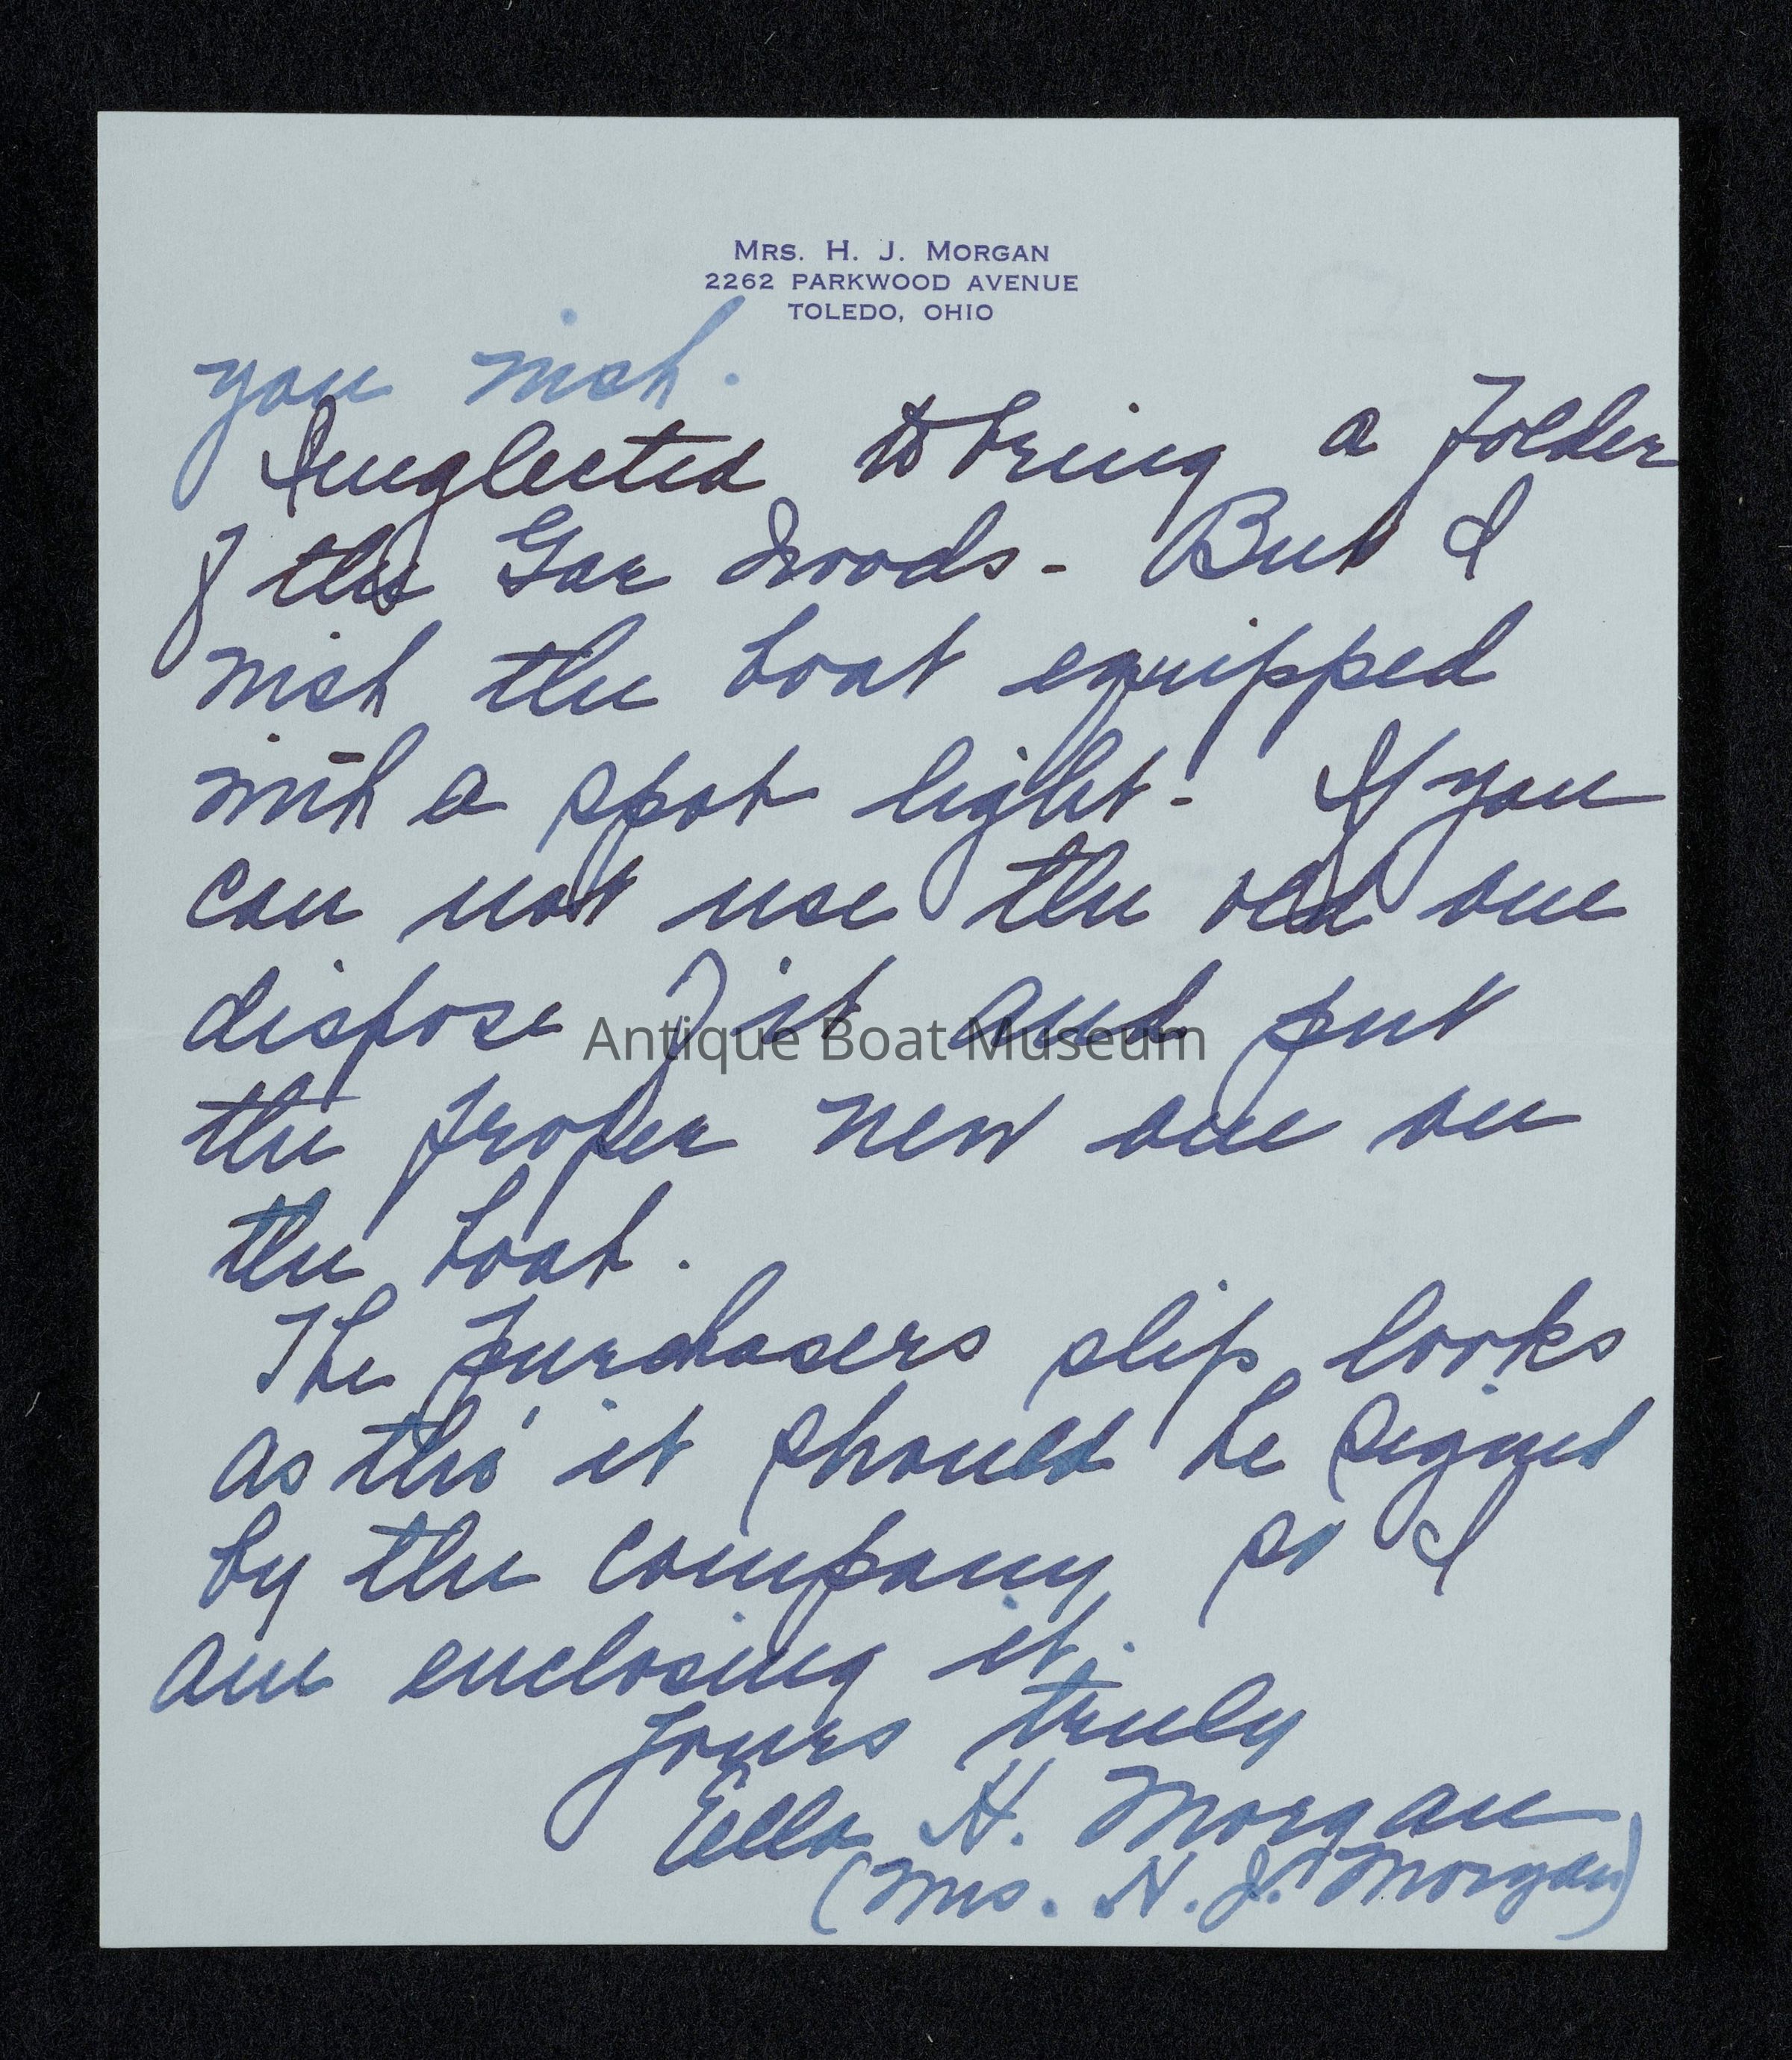 MRS. H. J. MORGAN
2262 PARKWOOD AVENUE
TOLEDO, OHIO
you wish.
I neglected to bring a folder
of the Gar Woods - But I
wish the boat equipped
with a spot light - If you
can not use the old one
dispose of it and put
the proper new one on
the boat.
The purchasers slip looks
as tho' it should be signed
by the company so I
am enclosing it.
Yours truly
Ella H. Morgan
(Mrs. H. J. Morgan)
Antique Boat Museum